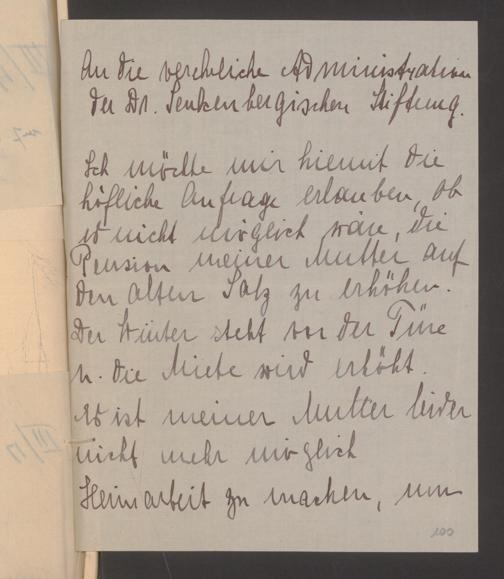 An die verehrliche Administration
der Dr. Senkenbergischen Stiftung.
Ich möchte mir hiemit die
höfliche Anfrage erlauben, ob
es nicht möglich wäre, die
Pension meiner Mutter auf
den alten Satz zu erhöhen.
Der Winter steht vor der Türe
u. die Miete wird erhöht.
Es ist meiner Mutter leider
nicht mehr möglich
Heimarbeit zu machen, um
100